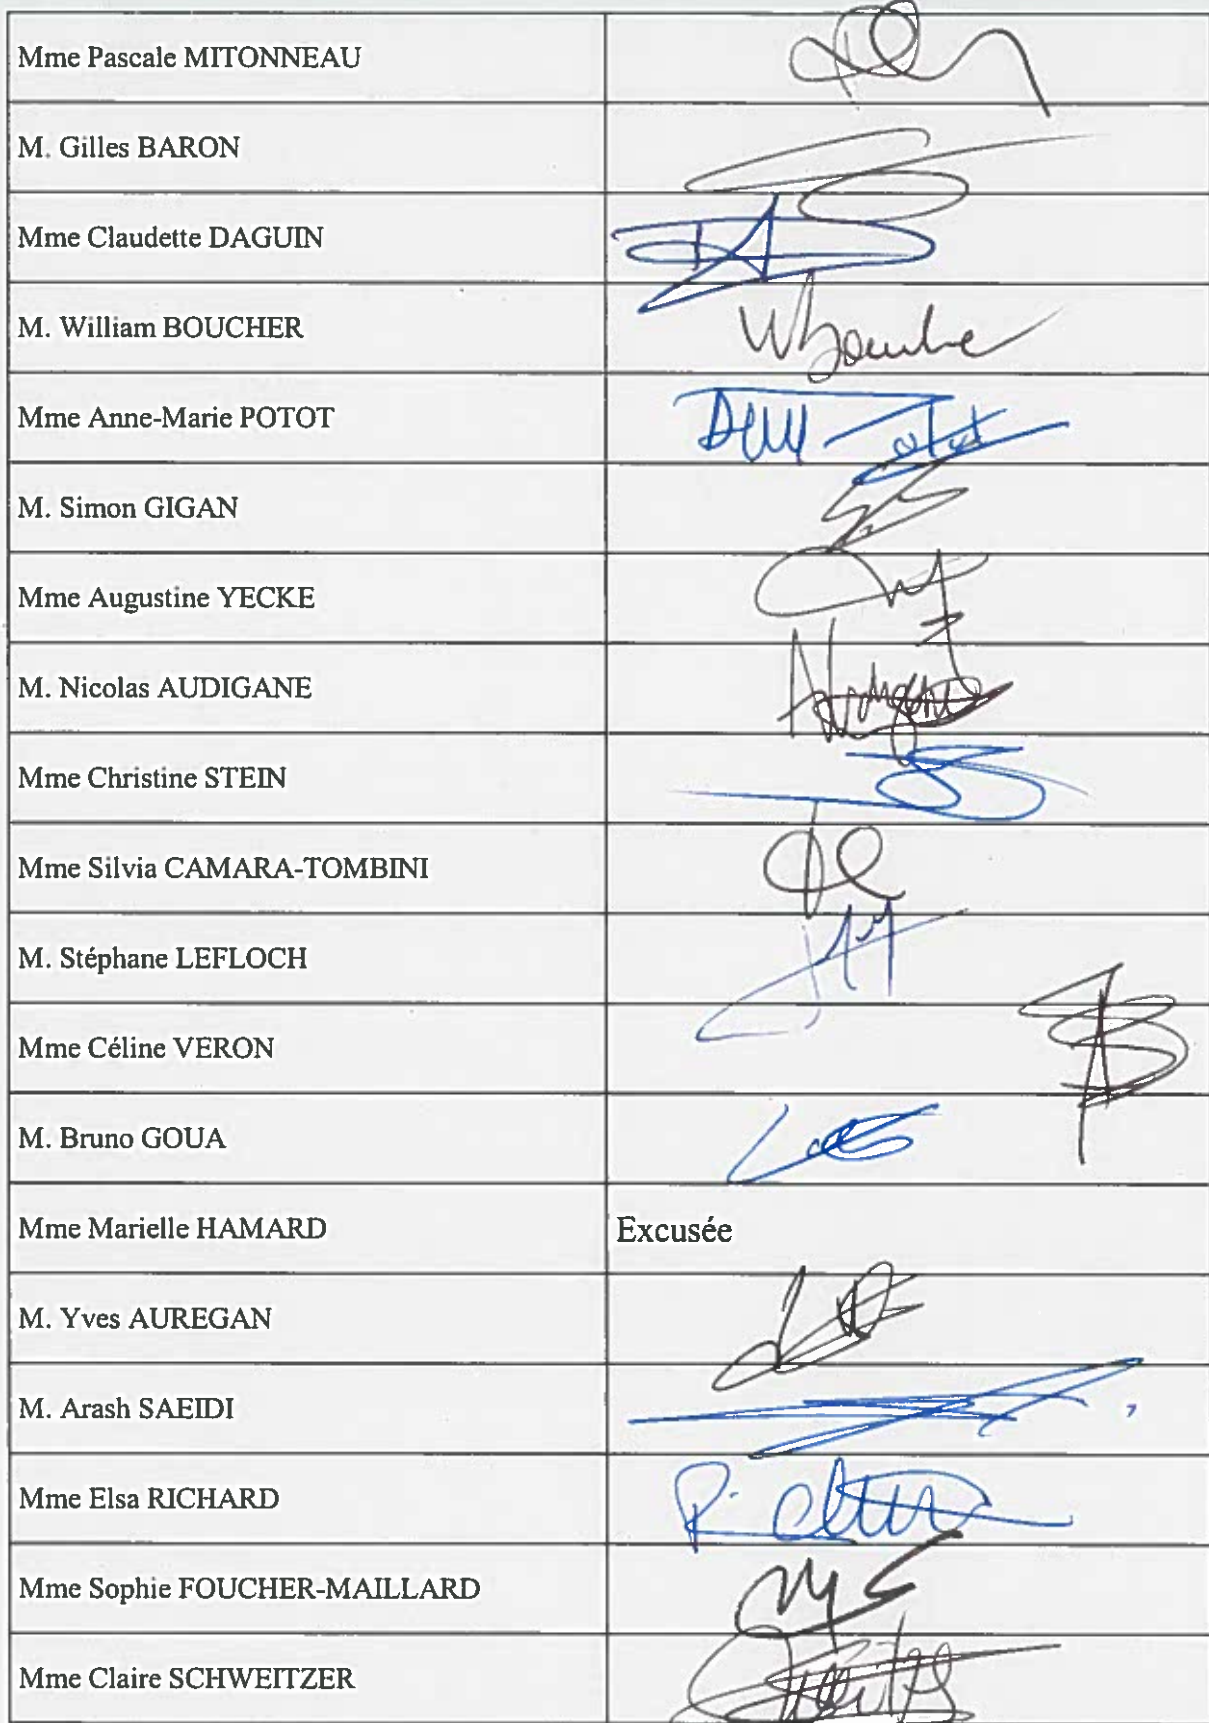 Mme Pascale MITONNEAU
M. Gilles BARON
Mme Claudette DAGUIN
M. William BOUCHER
Mme Anne-Marie POTOT
M. Simon GIGAN
Mme Augustine YECKE
M. Nicolas AUDIGANE
Mme Christine STEIN
Mme Silvia CAMARA-TOMBINI
M. Stéphane LEFLOCH
Mme Céline VERON
M. Bruno GOUA
Mme Marielle HAMARD Excusée
M. Yves AUREGAN
M. Arash SAEIDI
Mme Elsa RICHARD
Mme Sophie FOUCHER-MAILLARD
Mme Claire SCHWEITZER